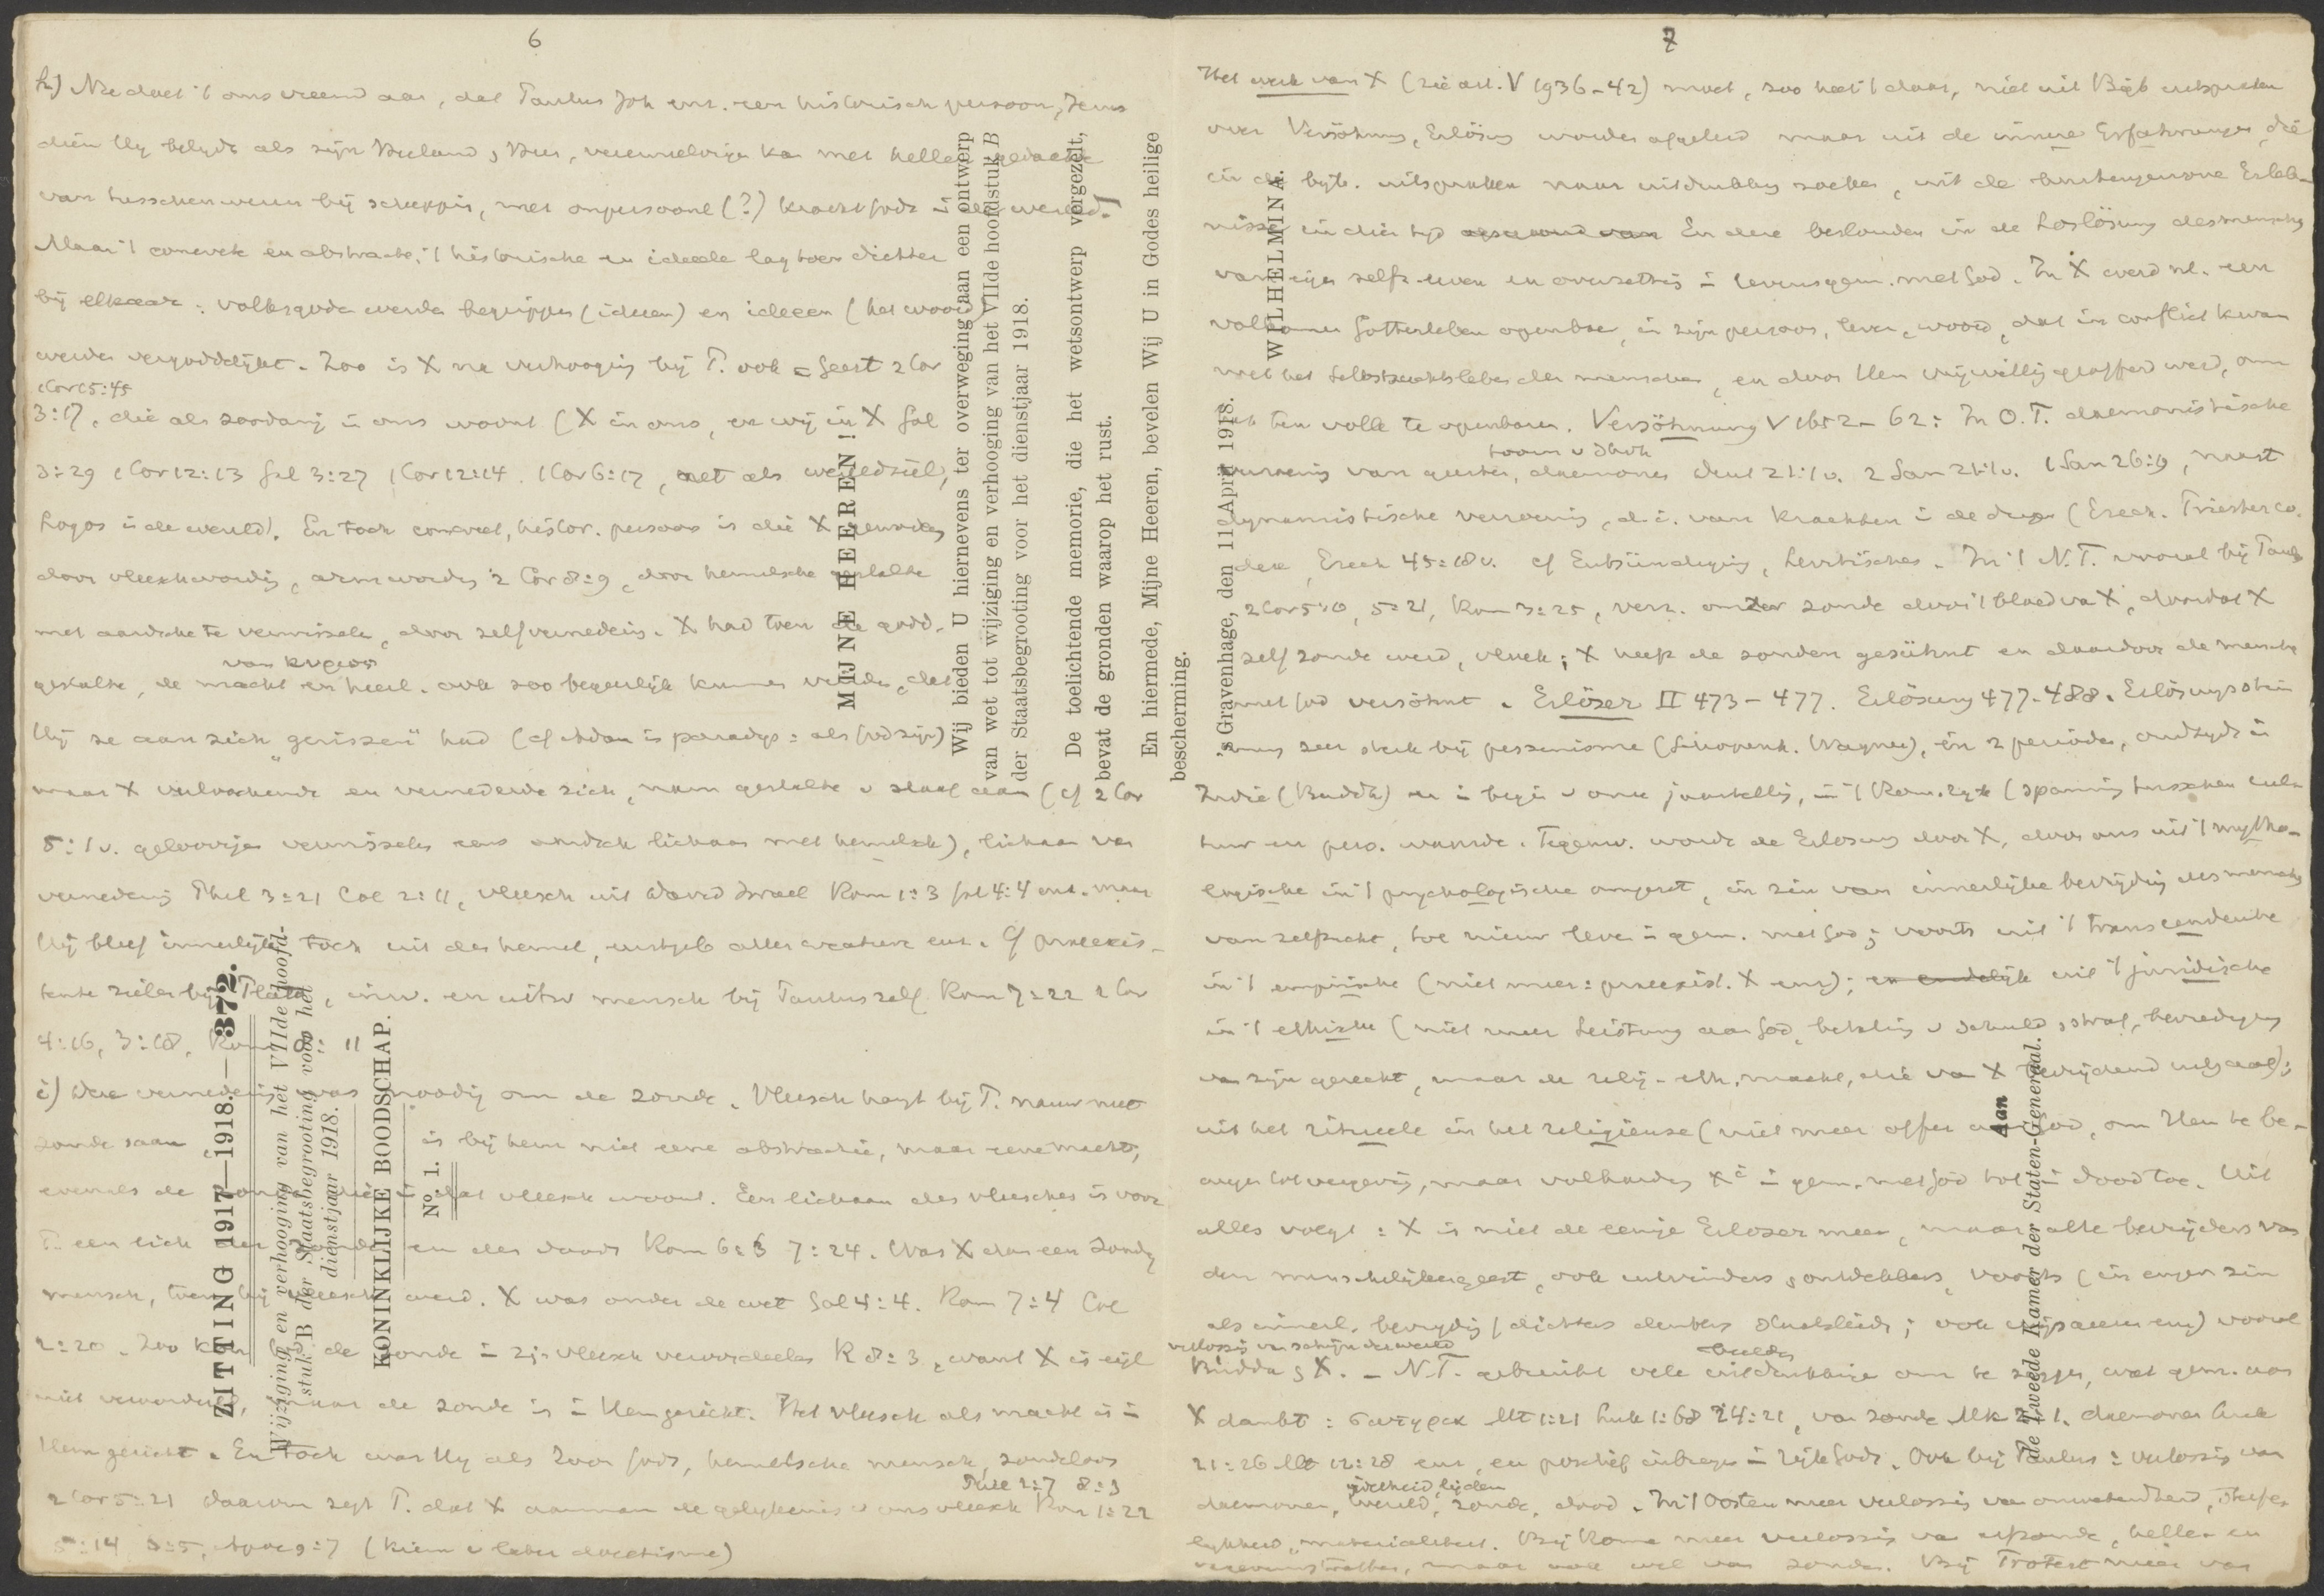 6
h) Nu doet 't ons vreemd aan, dat Paulus Joh enz. een historisch persoon, Jezus
dien Hij belijdt als zijn Heiland, Heer, vereenzelvigen kan met hellen. gedachte
van tusschenwezen bij schepping, met onpersoonl (?) kracht Gods in de wereld.
Maar 't concrete en abstracte, 't historische en ideeele lag toen dichter
bij elkaar: volksgoden werden begrippen (ideeen) en ideeen (het woord)
werden vergoddelijkt. Zoo is X na verhooging bij P. ook = Geest 2 Cor
1 Cor 15:45
3:17, die als zoodanig in ons woont (X in ons, en wij in X Gal
3:29 1 Cor 12:13 Gal 3:27 1 Cor 12:14. 1 Cor 6:17, net als wereldziel,
Logos in de wereld). En toch concreet, histor. persoon is die X geworden
door vleeschwording, arm worden 2 Cor 8:9, door hemelsche gestalte
met aardsche te verwisselen, door zelfvernedering. X had toen de godd.
van κυριος
gestalte, de macht en heerl. ook zoo begeerlijk kunnen vinden, dat
Hij ze aan zich „gerissen" had (cf Adam in paradijs: als God zijn)
maar X verloochende en vernederde zich, nam gestalte v slaaf aan (cf 2 Cor
5:1 v. geloovigen verwisselen eens aardsch lichaam met hemelsch), lichaam van
vernedering Phil 3:21 Col 2:11, vleesch uit David Israel Rom 1:3 Gal 4:4 enz. maar
Hij bleef innerlijk toch uit den hemel, eerstgeb aller creature enz. Cf preexis-
tente zielen bij Plato, inw. en uitw mensch bij Paulus zelf Rom 7:22 2 Cor
4:16, 3:18, Rom 8:11
i) Deze vernedering was noodig om de zonde. Vleesch hangt bij P. nauw met
zonde saam is bij hem niet eene abstractie, maar eene macht,
evenals de zonde die in dat vleesch woont. Een lichaam des vleesches is voor
P. een lich der zonde en des doods Rom 6:6 7:24. Was X dan een zondig
mensch, toen hij vleesch werd. X was onder de wet Gal 4:4. Rom 7:4 Col
2:20. Zoo kon God de zonde in zijn vleesch veroordeelen R 8:3, want X is eigl
niet veroordeeld, maar de zonde is in Hem gericht. Het vleesch als macht is in
Hem gericht. En toch was Hij als Zoon Gods, hemelsche mensch, zondeloos
Phil 2:7 8:3
2 Cor 5:21 daarom zegt P. dat X aannam de gelijkenis v ons vleesch Rom 1:22
5:14 6:5, Apoc 9:7 (kiem v later docetisme)
ZITTING 1917—1918. — 372.
Wijziging en verhooging van het VIIde hoofd-
stuk B der Staatsbegrooting voor het
dienstjaar 1918.
KONINKLIJKE BOODSCHAP.
No. 1.
MIJNE HEEREN!
Wij bieden U hiernevens ter overweging aan een ontwerp
van wet tot wijziging en verhooging van het VIIde hoofdstuk B
der Staatsbegrooting voor het dienstjaar 1918.
De toelichtende memorie, die het wetsontwerp vergezelt,
bevat de gronden waarop het rust.
En hiermede, Mijne Heeren, bevelen Wij U in Godes heilige
bescherming.
's Gravenhage, den 11 April 1918.
WILHELMINA.
Aan
de Tweede Kamer der Staten-Generaal.
7
Het werk van X (zie art. V 1936-42) moet, zoo heet 't daar, niet uit Bijb uitspraken
over Versöhnung, Erlösung worden afgeleid maar uit de innere Erfahrungen, die
in de bijb. uitspraken naar uitdrukking zoeken, uit de Erleb-
nisse in dien tijd En deze bestonden in de Loslösung des menschen
van eigen zelfz. leven en overzetting in levensgem. met God. In X werd nl. een
volkomen Gotterleben openbaar, in zijn persoon, leven, woord, dat in conflict kwam
met het Selbstsuchtsleben der menschen, en door Hem vrijwillig geofferd werd, om
't ten volle te openbaren. Versöhnung V 1652-62: In O.T. daemonistische
toorn v Jhvh
verzoening van geesten, daemonen Deut 21:1 v. 2 Sam 21:1 v. 1 Sam 26:19, naast
dynamistische verzoening, d.i. van krachten in de dingen (Ezech. Priesterco-
dex, Ezech 45:18 v. cf Entsündigung, Levitisches. In 't N.T. vooral bij Paulus
2 Cor 5:10, 5:21, Rom 3:25, verz. onzer zonde door 't bloed van X, doordat X
zelf zonde werd, vloek; X heeft de zonden gesühnt en daardoor de menschen
met God versöhnt. Erlöser II 473-477. Erlösung 477-488.
zeer sterk bij pessimisme (Schopenh. Wagner), in 2 perioden, oudtijds in
Indië (Buddh) en in begin v onze jaartelling, in 't Rom. rijk (spanning tusschen cul-
tuur en pers. waarde. Tegenw. wordt de Erlosung door X, door ons uit 't mytho-
logische in 't psychologische omgezet, in zin van innerlijke bevrijding des menschen
van zelfzucht, tot nieuw leven in gem. met God; voorts uit 't transcendente
in 't empirische (niet meer: preexist. X enz); en eindelijk uit 't juridische
in 't ethische (niet meer Leistung aan God, betaling v schuld, straf, bevrediging
van zijn gerecht, maar de relig-eth. macht, die van X bevrijdend uitgaat);
uit het ritueele in het religieuse (niet meer offer aan God, om Hem te be-
wegen tot vergeving, maar volharding Xi in gem. met God tot in dood toe. Uit
alles volgt: X is niet de eenige Erloser meer, maar alle bevrijders van
den menschelijken geest, ook uitvinders, ontdekkers, voorts (in engen zin
als innerl. bevrijding) dichters denkers Staatslieden; ook vooral
verlossing van schijn der wereld
beelden
Budda & X. — N.T. gebruikt vele uitdrukkingen om te zeggen, wat gem. aan
X dankt: Mt 1:21 Luk 1:68 24:21, van zonde Mk 2:1, daemonen Luk
21:26 Mt 12:28 enz, en positief inbrengen in rijk Gods. Ook bij Paulus: verlossing van
ijdelheid, lijden
daemonen, wereld, zonde, dood. In 't Oosten meer verlossing van onwetendheid, sterfe-
lijkheid, materialiteit. Bij Rome meer verlossing van erfzonde, helle- en
vagevuurstraffen, maar ook wel van zonden. Bij Protest meer van